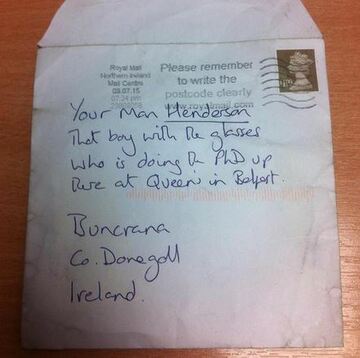 Royal Mail
Northern Ireland
Mail Centre
03.07.15
07:24 pm
Please remember
to write the
postcode clearly
www.royalmail.com
Your Man Henderson
That boy with the glasses
who is doing the PhD up
here at Queen's in Belfast.
Buncrana
Co. Donegall
Ireland.